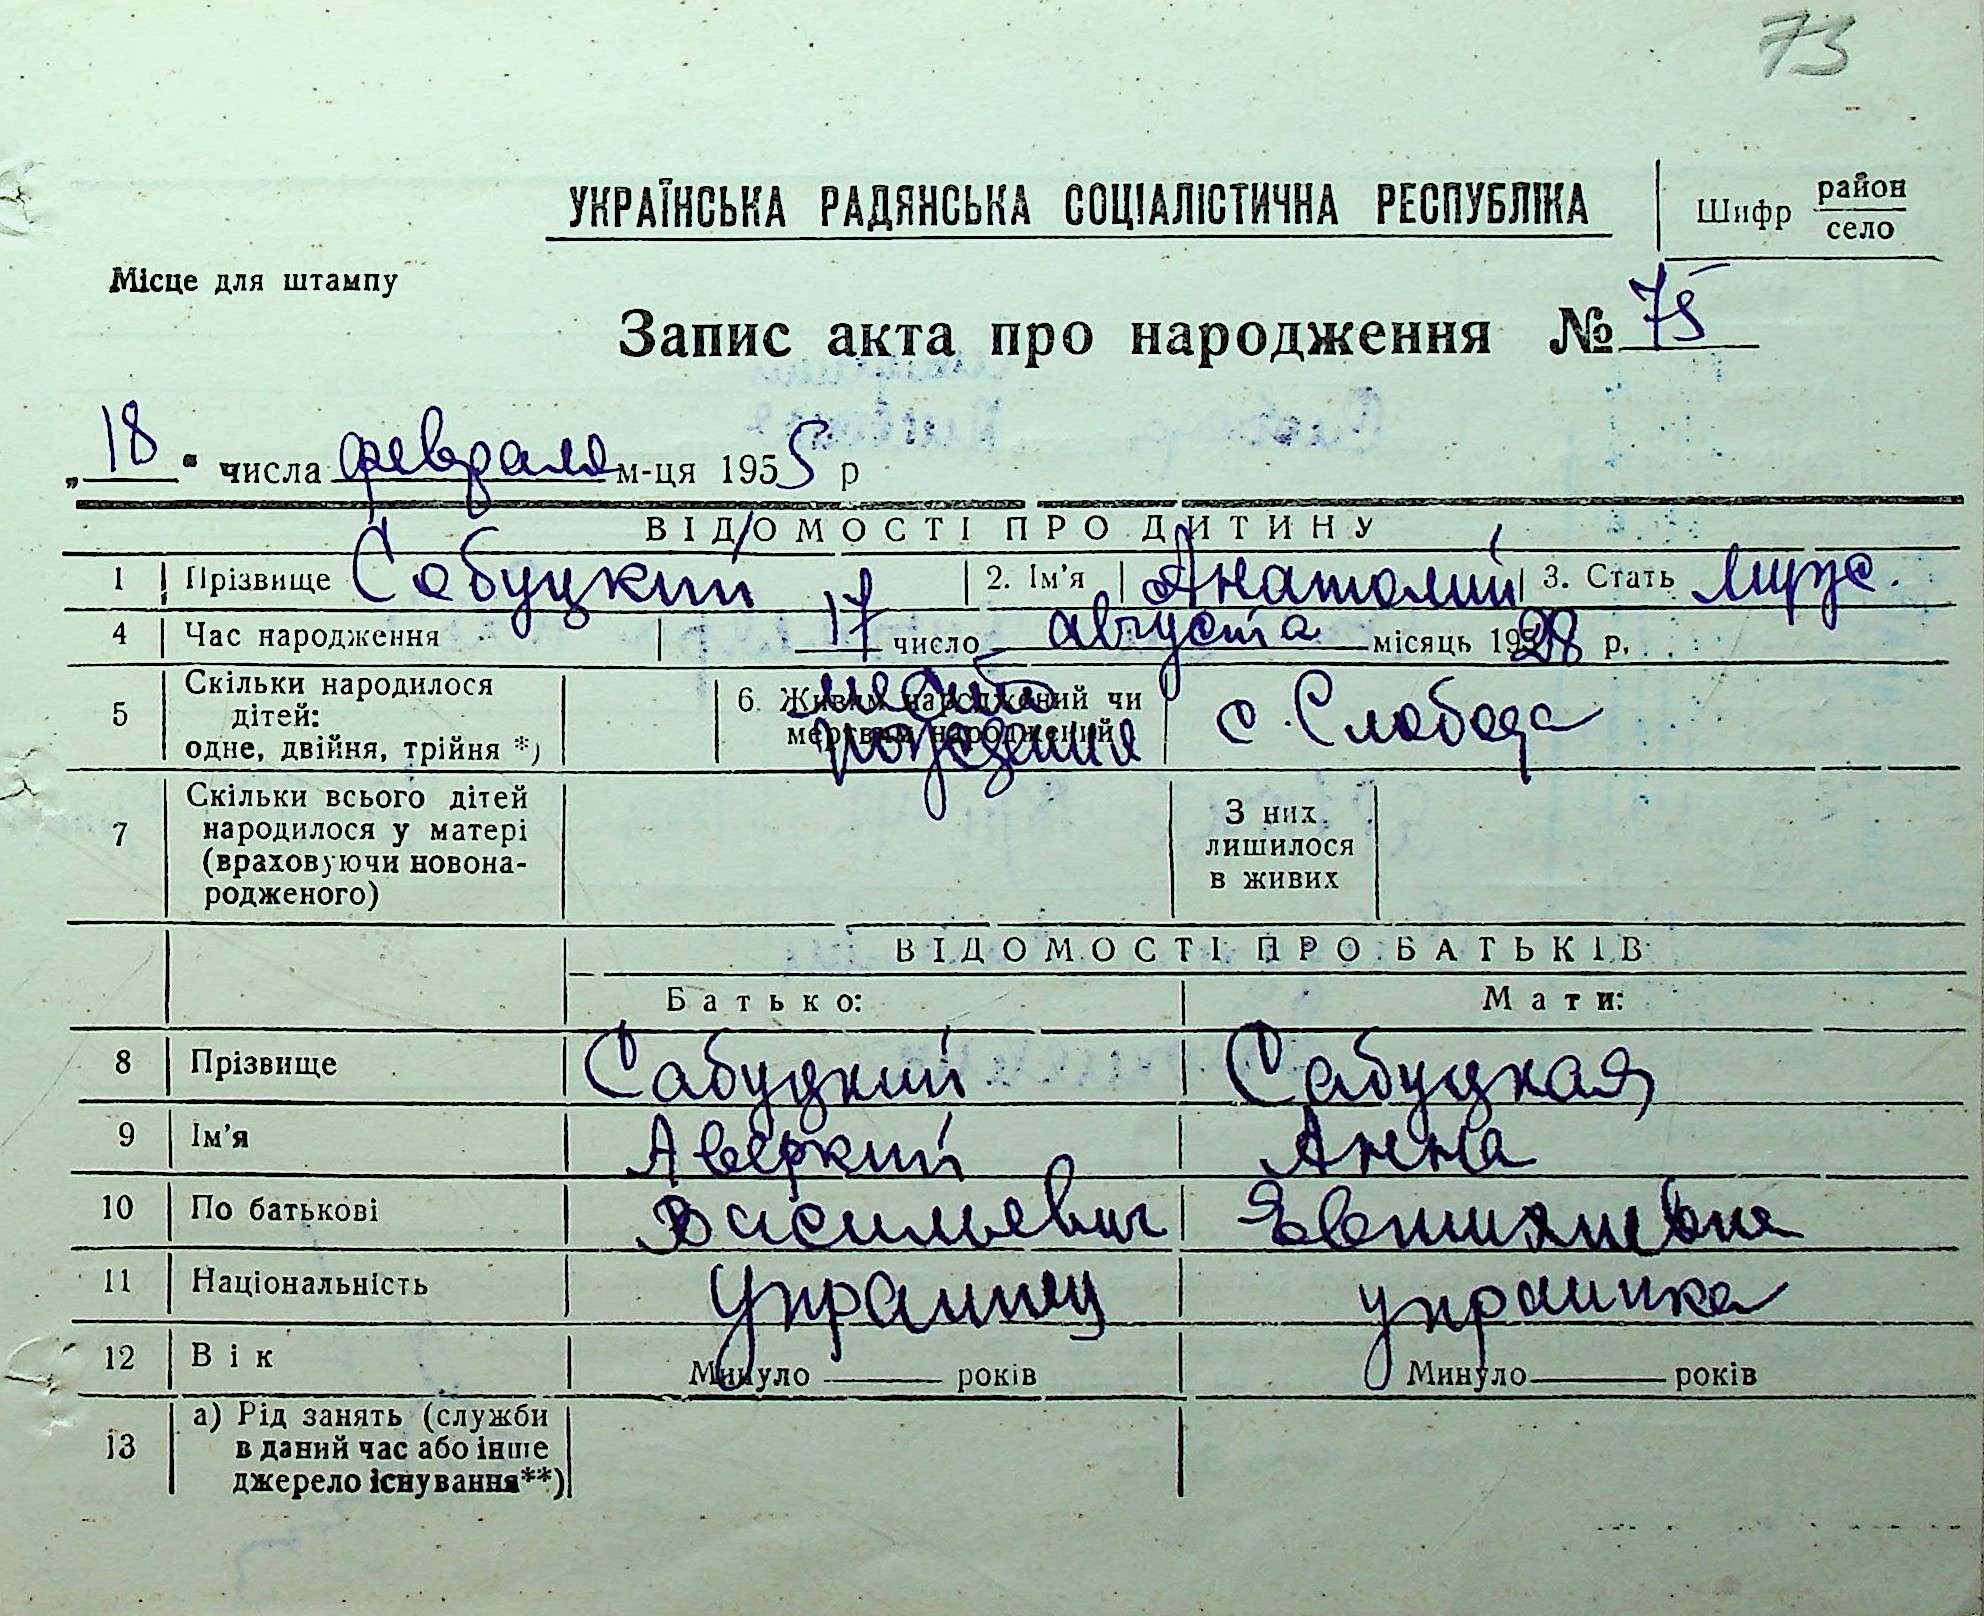 73
УКРАЇНСЬКА РАДЯНСЬКА СОЦІАЛІСТИЧНА РЕСПУБЛІКА
Шифр район
село
Місце для штампу
Запис акта про народження № 75
„18" числа февраля м-ця 1955 р
ВІДОМОСТІ ПРО ДИТИНУ
1 Прізвище Сабуцкий 2. Ім'я Анатолий 3. Стать муж.
4 Час народження 17 число августа місяць 1928 р.
5 Скільки народилося дітей: одне, двійня, трійня *) 6. Живим народжений чи мертвим народжений место рождения с. Слобода
7 Скільки всього дітей народилося у матері (враховуючи новона-родженого) З них лишилося в живих
ВІДОМОСТІ ПРО БАТЬКІВ
Батько: Мати:
8 Прізвище Сабуцкий Сабуцкая
9 Ім'я Аверкий Анна
10 По батькові Васильевич
11 Національність украинец украинка
12 Вік Минуло років Минуло років
13 а) Рід занять (служби в даний час або інше джерело існування**)